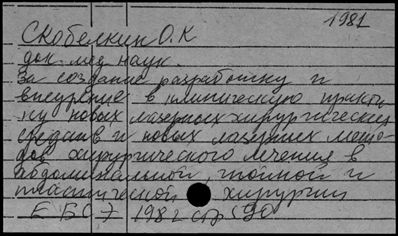 1981
Скобелкин О.К
док. мед наук.
За создание разработку и
внедрение в клиническую практи
ку новых лазерных хирургических
средств и новых лазерных мето-
дов хирургического лечения в
абдоминальной, гнойной и
пластической хирургии
Е БСЭ 1982 стр 590